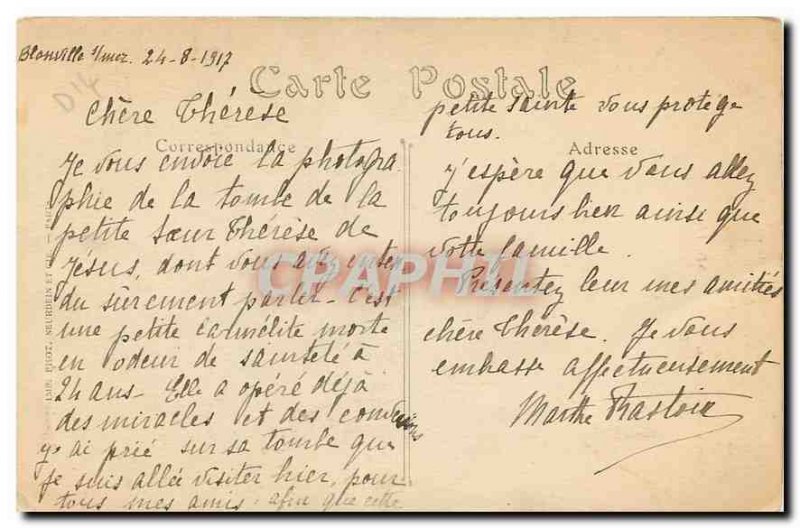 Blonville s/mer. 24-8-1917
D14
Carte Postale
Chère Thérèse
Correspondance
Je vous envoie la photogra
phie de la tombe de la
petite Sœur Thérèse de
Jésus, dont vous avez enten
du sûrement parler - C'est
une petite carmélite morte
en odeur de sainteté à
24 ans - Elle a opéré déjà
des miracles et des conversions
j'ai prié sur sa tombe que
je suis allée visiter hier, pour
tous mes amis afin que cette
petite sainte vous protège
tous.
Adresse
J'espère que vous allez
toujours bien ainsi que
votre famille.
Présentez leur mes amitiés
chère Thérèse. Je vous
embrasse affectueusement
Marthe
IMP. PHOT. NEURDEIN ET CIE. — PARIS
CPAPHIL